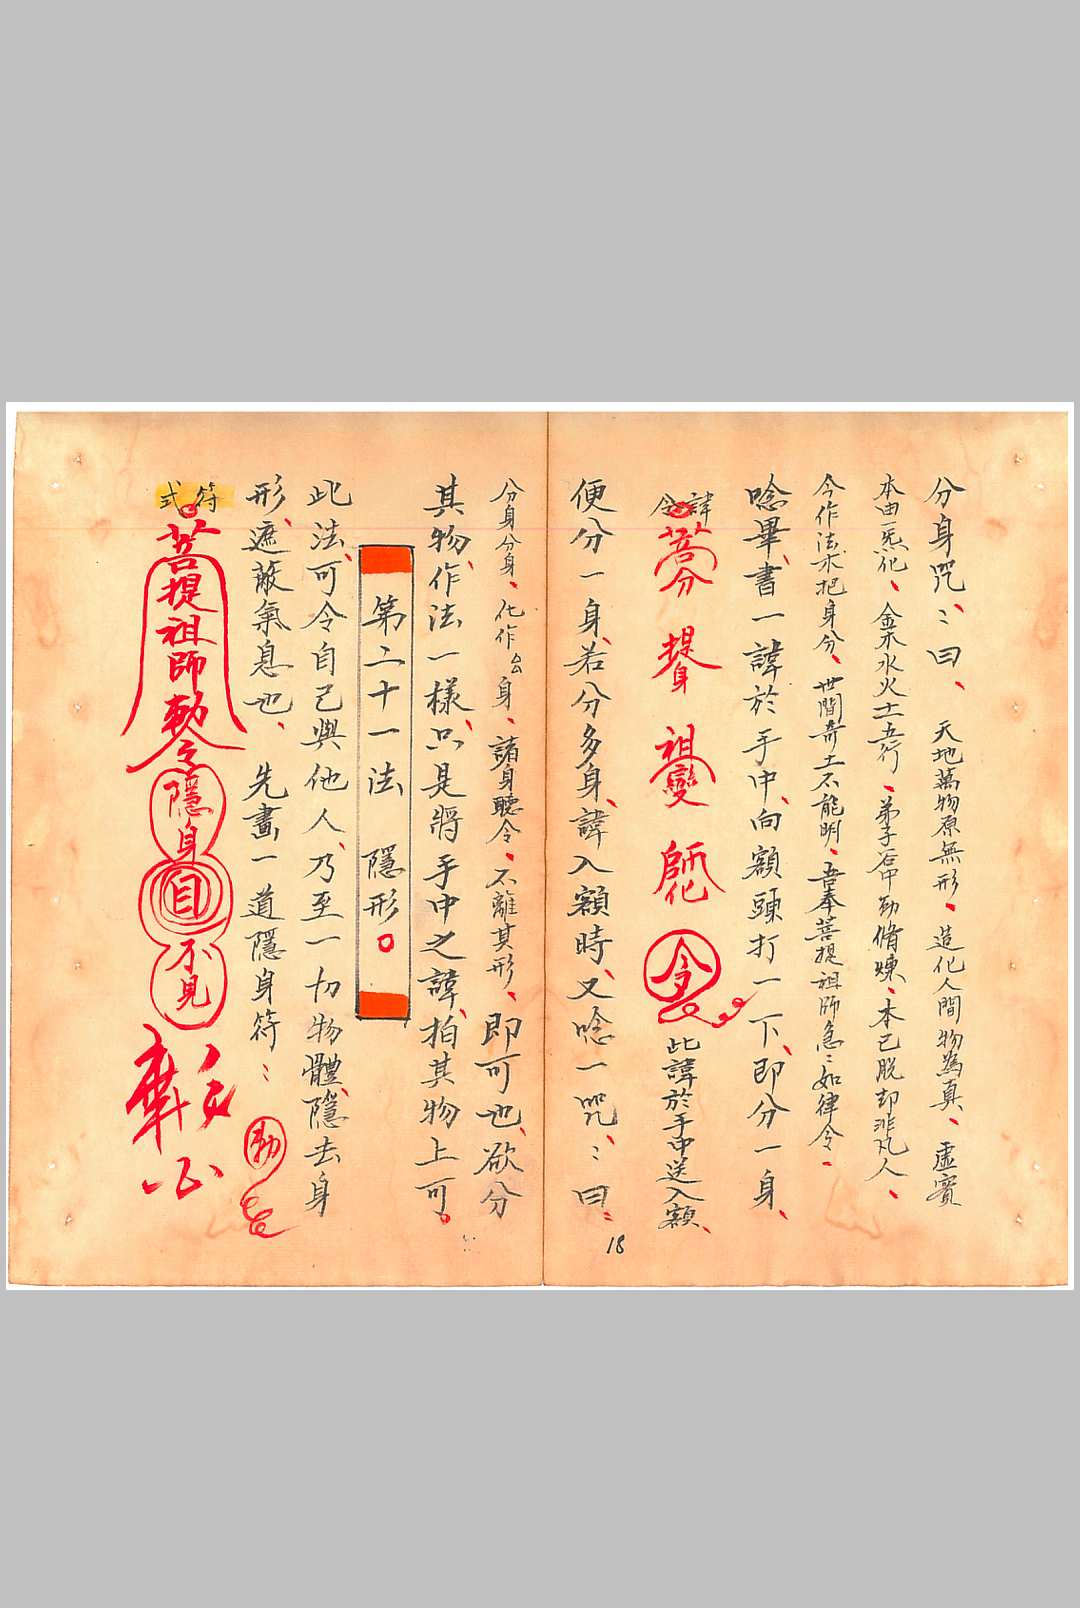 分身咒〻曰、天地萬物原無形、造化人間物為真、虛實
本由一炁化、金木水火土五行、弟子石中勤脩煉、本已脫却非凡人、
今作法术把身分、世間奇士不能明、吾奉菩提祖師急〻如律令、
唸畢、書一諱於手中、向額頭打一下、即分一身、
諱令
菩分 提身 祖變 師化 令 此諱於手中送入額、
便分一身、若分多身、諱入額時、又唸一咒〻曰:
分身分身、化作厶身、諸身聽令、不離其形、即可也、欲分
其物、作法一樣、只是將手中之諱、拍其物上可。
第二十一法 隱形。
此法、可令自己與他人、乃至一切物體、隱去身
形、遮蔽氣息也、先畫一道隱身符:
符式
菩提祖師勅令隱身目不見
18